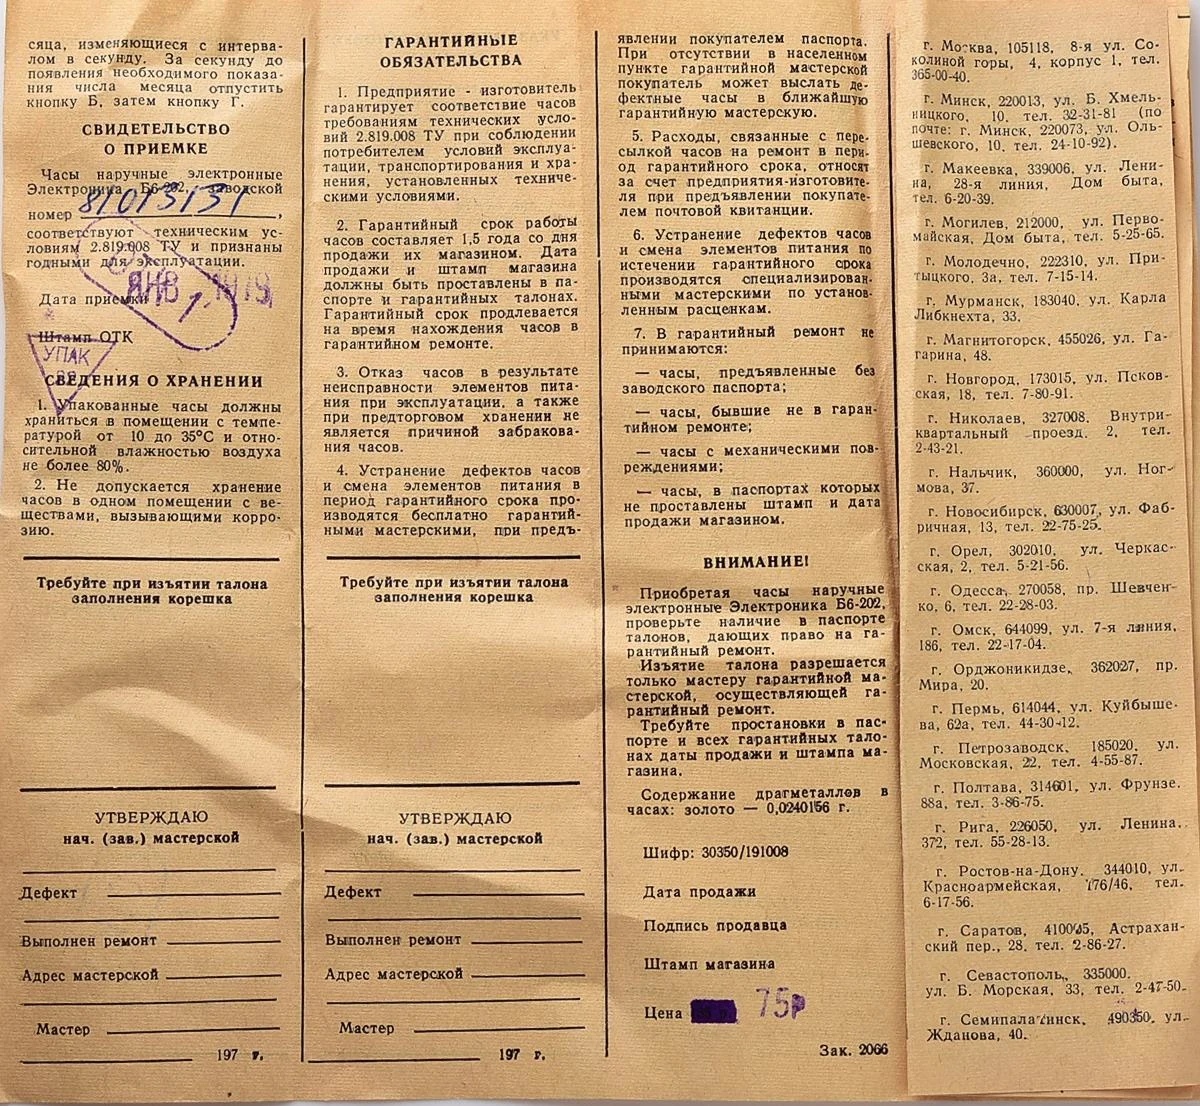 сяца, изменяющиеся с интерва-
лом в секунду. За секунду до
появления необходимого показа-
ния числа месяца отпустить
кнопку Б, затем кнопку Г.
СВИДЕТЕЛЬСТВО
О ПРИЕМКЕ
Часы наручные электронные
Электроника Б6-202, заводской
номер 81013131,
соответствуют техническим ус-
ловиям 2.819.008 ТУ и признаны
годными для эксплуатации.
ЯНВ 1979
Дата приемки
Штамп ОТК
УПАК
СВЕДЕНИЯ О ХРАНЕНИИ
1. Упакованные часы должны
храниться в помещении с темпе-
ратурой от 10 до 35°С и отно-
сительной влажностью воздуха
не более 80%.
2. Не допускается хранение
часов в одном помещении с ве-
ществами, вызывающими корро-
зию.
Требуйте при изъятии талона
заполнения корешка
УТВЕРЖДАЮ
нач. (зав.) мастерской
Дефект
Выполнен ремонт
Адрес мастерской
Мастер
197 г.
ГАРАНТИЙНЫЕ
ОБЯЗАТЕЛЬСТВА
1. Предприятие - изготовитель
гарантирует соответствие часов
требованиям технических усло-
вий 2.819.008 ТУ при соблюдении
потребителем условий эксплуа-
тации, транспортирования и хра-
нения, установленных техниче-
скими условиями.
2. Гарантийный срок работы
часов составляет 1,5 года со дня
продажи их магазином. Дата
продажи и штамп магазина
должны быть проставлены в па-
спорте и гарантийных талонах.
Гарантийный срок продлевается
на время нахождения часов в
гарантийном ремонте.
3. Отказ часов в результате
неисправности элементов пита-
ния при эксплуатации, а также
при предторговом хранении не
является причиной забракова-
ния часов.
4. Устранение дефектов часов
и смена элементов питания в
период гарантийного срока про-
изводятся бесплатно гарантий-
ными мастерскими, при предъ-
Требуйте при изъятии талона
заполнения корешка
УТВЕРЖДАЮ
нач. (зав.) мастерской
Дефект
Выполнен ремонт
Адрес мастерской
Мастер
197 г.
явлении покупателем паспорта.
При отсутствии в населенном
пункте гарантийной мастерской
покупатель может выслать де-
фектные часы в ближайшую
гарантийную мастерскую.
5. Расходы, связанные с пере-
сылкой часов на ремонт в пери-
од гарантийного срока, относят
за счет предприятия-изготовите-
ля при предъявлении покупате-
лем почтовой квитанции.
6. Устранение дефектов часов
и смена элементов питания по
истечении гарантийного срока
производятся специализирован-
ными мастерскими по установ-
ленным расценкам.
7. В гарантийный ремонт не
принимаются:
— часы, предъявленные без
заводского паспорта;
— часы, бывшие не в гаран-
тийном ремонте;
— часы с механическими пов-
реждениями;
— часы, в паспортах которых
не проставлены штамп и дата
продажи магазином.
ВНИМАНИЕ!
Приобретая часы наручные
электронные Электроника Б6-202,
проверьте наличие в паспорте
талонов, дающих право на га-
рантийный ремонт.
Изъятие талона разрешается
только мастеру гарантийной ма-
стерской, осуществляющей га-
рантийный ремонт.
Требуйте простановки в пас-
порте и всех гарантийных тало-
нах даты продажи и штампа ма-
газина.
Содержание драгметаллов в
часах: золото — 0,0240156 г.
Шифр: 30350/191008
Дата продажи
Подпись продавца
Штамп магазина
Цена 75р
Зак. 2066
г. Москва, 105118, 8-я ул. Со-
колиной горы, 4, корпус 1, тел.
365-00-40.
г. Минск, 220013, ул. Б. Хмель-
ницкого, 10, тел. 32-31-81 (по
почте: г. Минск, 220073, ул. Оль-
шевского, 10, тел. 24-10-92).
г. Макеевка, 339006, ул. Лени-
на, 28-я линия, Дом быта,
тел. 6-20-39.
г. Могилев, 212000, ул. Перво-
майская, Дом быта, тел. 5-25-65.
г. Молодечно, 222310, ул. При-
тыцкого, 3а, тел. 7-15-14.
г. Мурманск, 183040, ул. Карла
Либкнехта, 33.
г. Магнитогорск, 455026, ул. Га-
гарина, 48.
г. Новгород, 173015, ул. Псков-
ская, 18, тел. 7-80-91.
г. Николаев, 327008, Внутри-
квартальный проезд, 2, тел.
2-43-21.
г. Нальчик, 360000, ул. Ног-
мова, 37.
г. Новосибирск, 630007, ул. Фаб-
ричная, 13, тел. 22-75-25.
г. Орел, 302010, ул. Черкас-
ская, 2, тел. 5-21-56.
г. Одесса, 270058, пр. Шевчен-
ко, 6, тел. 22-28-03.
г. Омск, 644099, ул. 7-я линия,
186, тел. 22-17-04.
г. Орджоникидзе, 362027, пр.
Мира, 20.
г. Пермь, 614044, ул. Куйбыше-
ва, 62а, тел. 44-30-12.
г. Петрозаводск, 185020, ул.
Московская, 22, тел. 4-55-87.
г. Полтава, 314601, ул. Фрунзе,
88а, тел. 3-86-75.
г. Рига, 226050, ул. Ленина,
372, тел. 55-28-13.
г. Ростов-на-Дону, 344010, ул.
Красноармейская, 176/46, тел.
6-17-56.
г. Саратов, 410005, Астрахан-
ский пер., 28, тел. 2-86-27.
г. Севастополь, 335000,
ул. Б. Морская, 33, тел. 2-47-50.
г. Семипалатинск, 490350, ул.
Жданова, 40.